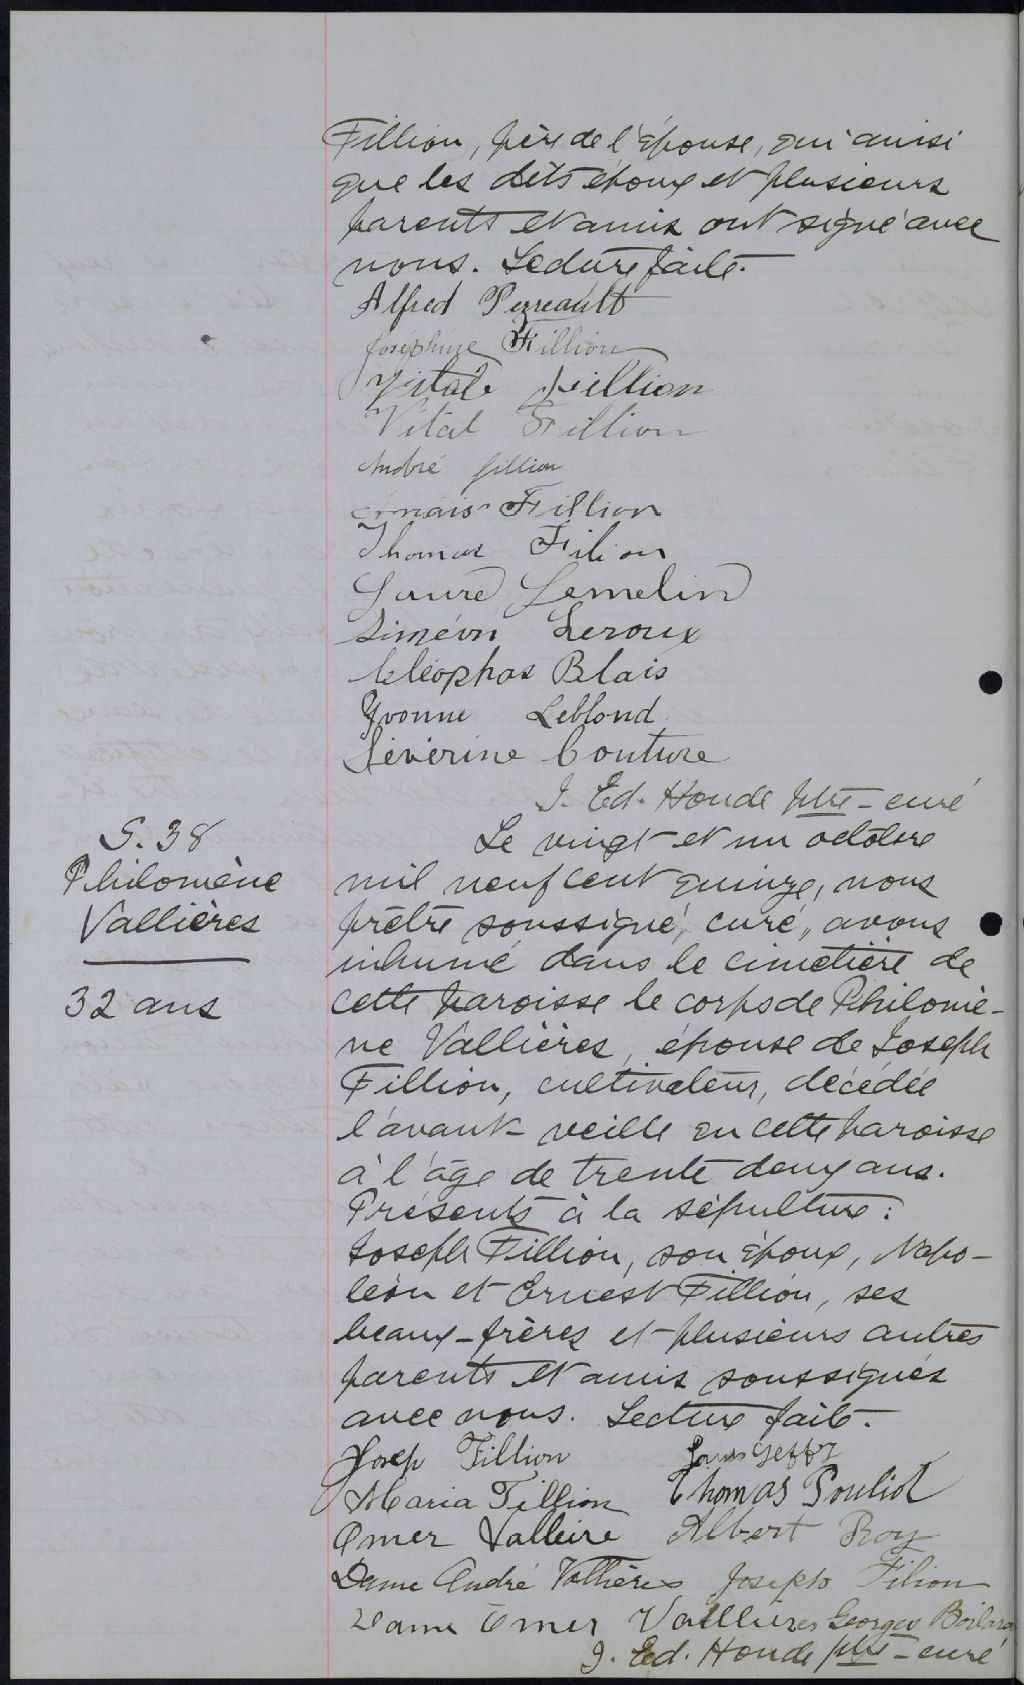 Fillion, père de l'épouse, qui ainsi
que les dits époux et plusieurs
parents et amis ont signé avec
nous. Lecture faite.
Alfred Perreault
Joséphine Fillion
Vitale Fillion
Vital Fillion
André fillion
Anais Fillion
Thomas Filion
Laure Lemelin
Siméon Leroux
Cléophas Blais
Yvonne Leblond
Séverine Couture
J. Ed. Houde ptre-curé
S. 38
Philomène
Vallières
32 ans
Le vingt et un octobre
mil neuf cent quinze, nous
prêtre soussigné, curé, avons
inhumé dans le cimetière de
cette paroisse le corps de Philomè-
ne Vallières, épouse de Joseph
Fillion, cultivateur, décédée
l'avant-veille en cette paroisse
à l'âge de trente deux ans.
Présents à la sépulture:
Joseph Fillion, son époux, Napo-
léon et Ernest Fillion, ses
beaux-frères et plusieurs autres
parents et amis soussignés
avec nous. Lecture faite.
Josep Fillion Louis
Maria Fillion Thomas Pouliot
Omer Valleire Albert Roy
Dame André Vallières Joseph Filion
Dame Omer Vallieres Georges Boilard
J. Ed. Houde ptre-curé